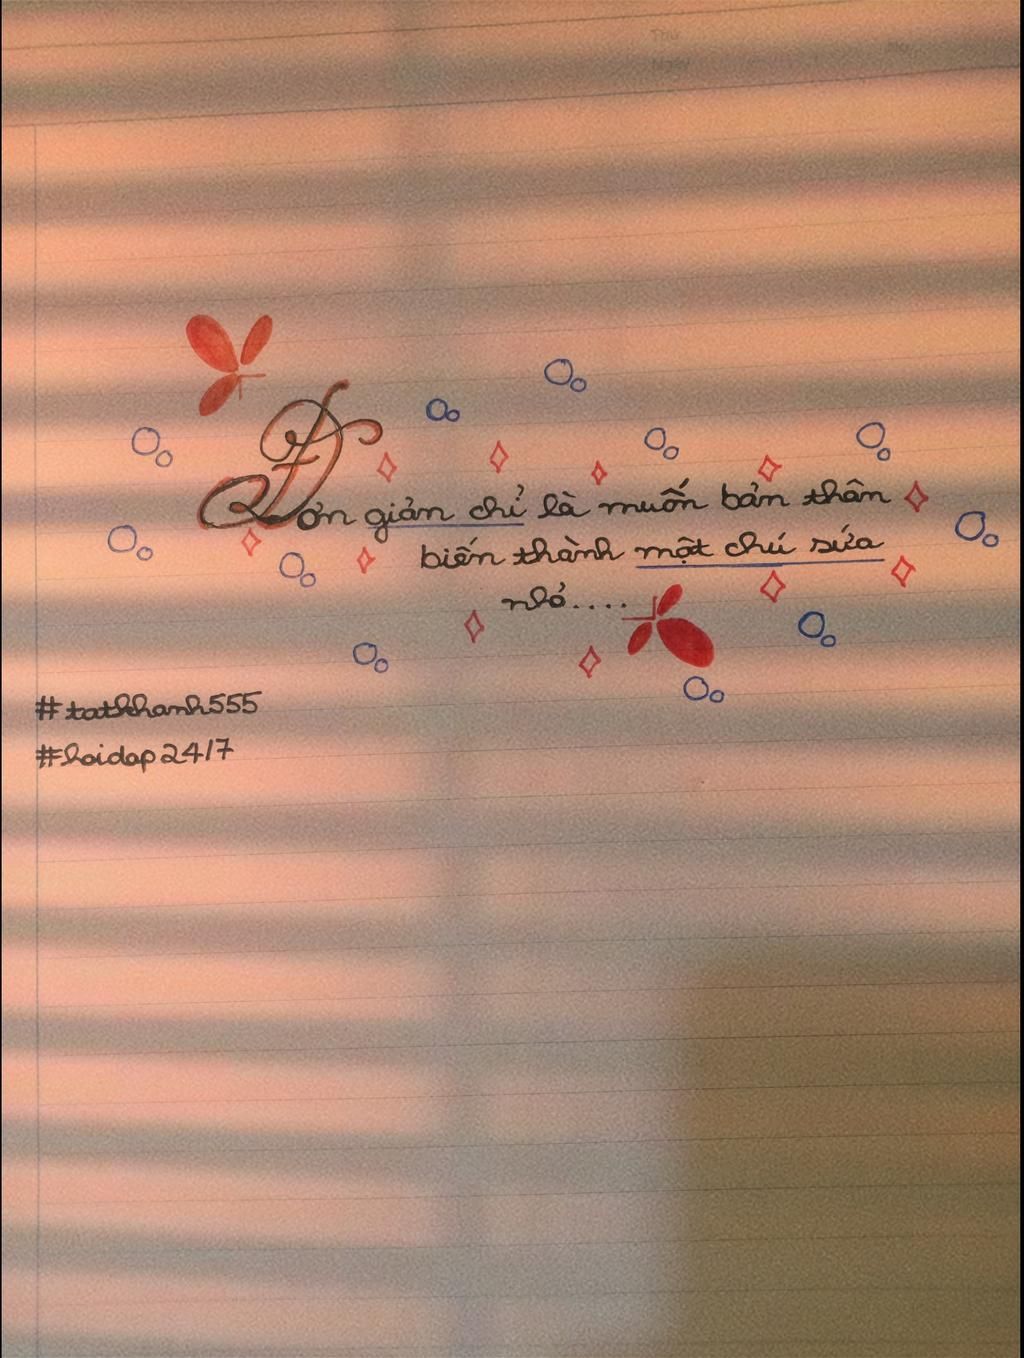 Thứ
Ngày
No.
Đơn giản chỉ là muốn bản thân
biến thành một chú sứa
nhỏ....
#tatkhanh555
#hoidap24/7